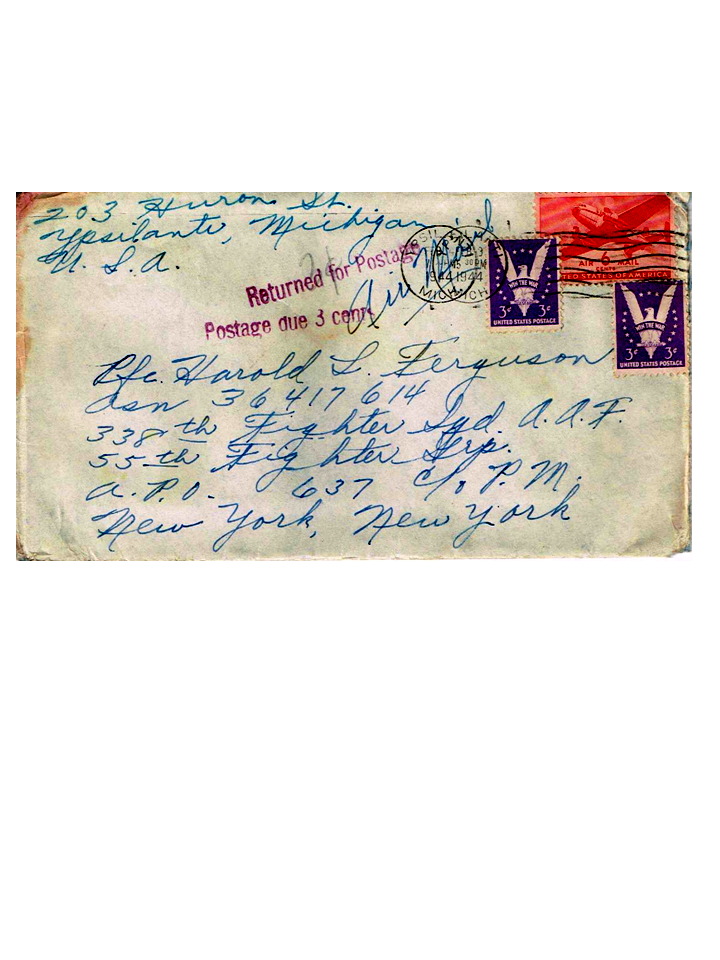 203 Huron St.
Ypsilante, Michigan
U. S. A.
Returned for Postage
Postage due 3 cent
1944 1944
MICH
AIR 6 MAIL
CENTS
UNITED STATES OF AMERICA
WIN THE WAR
3¢ 3¢
UNITED STATES POSTAGE
WIN THE WAR
3¢ 3¢
UNITED STATES POSTAGE
Pfc. Harold L. Ferguson
asn 36417614
338th Fighter Sqd. A. A. F.
55th Fighter Grp.
A. P. O. 637 c/o P. M.
New York, New York